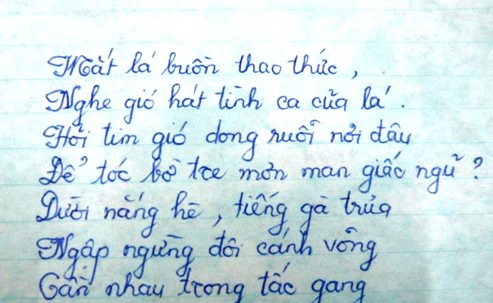 Mắt lá buồn thao thức,
Nghe gió hát tình ca của lá.
Hỏi tim gió dong ruổi nơi đâu
Để tóc bờ tre mơn man giấc ngủ?
Dưới nắng hè, tiếng gà trưa
Ngập ngừng đôi cánh võng
Gần nhau trong tấc gang